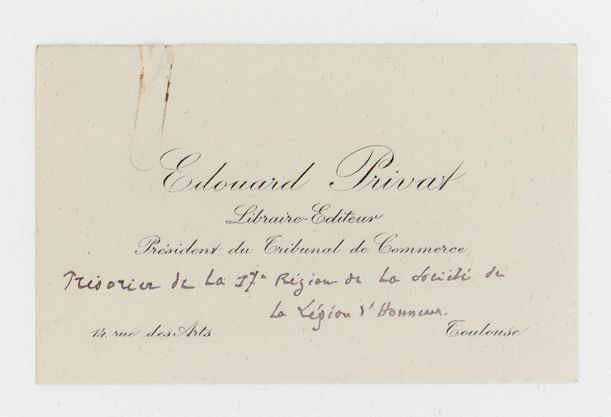 Edouard Privat
Libraire-Editeur
Président du Tribunal de Commerce
Trésorier de la 17e Région de la Société de
la Légion d'Honneur.
14, rue des Arts
Toulouse